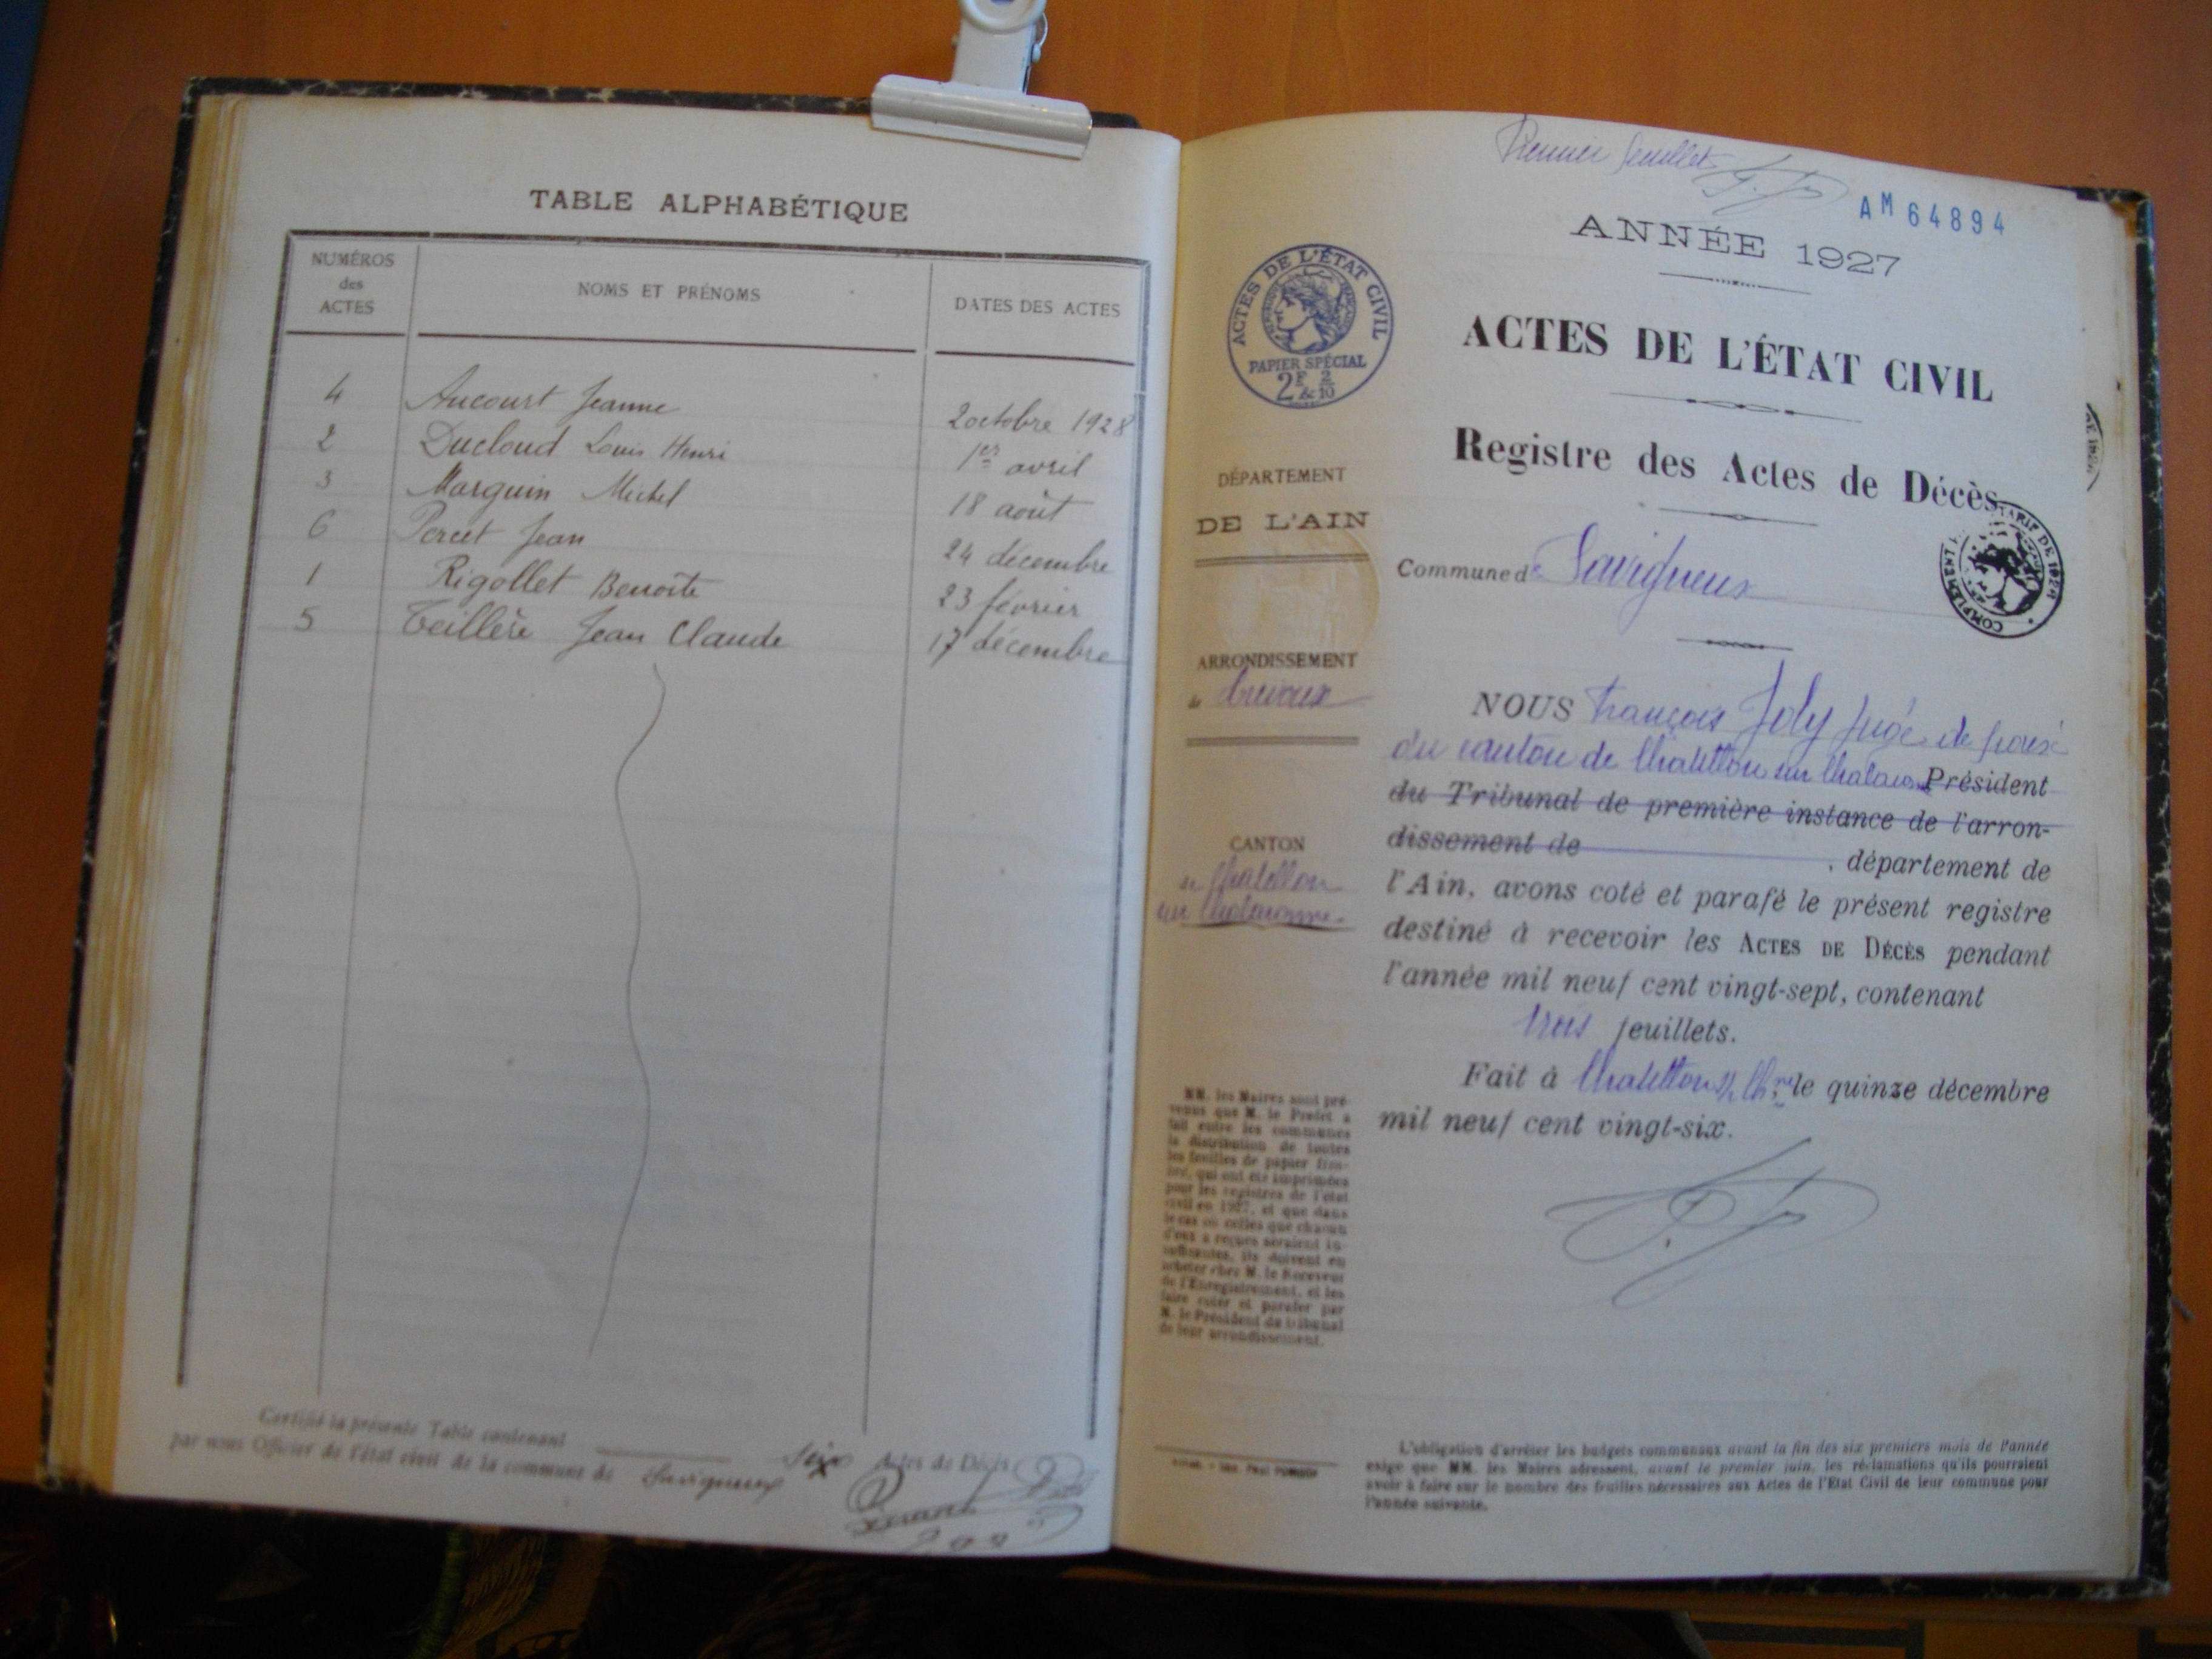 TABLE ALPHABÉTIQUE
NUMÉROS
des
ACTES
NOMS ET PRÉNOMS
DATES DES ACTES
4 Aucourt Jeanne 2 octobre 1928
2 Ducloud Louis Henri 1er avril
3 Marguin Michel 18 août
6 Percet Jean 24 décembre
1 Rigollet Benoîte 23 février
5 Teillère Jean Claude 17 décembre
Certifié la présente Table contenant six Actes de Décès
par nous Officier de l'état civil de la commune de Savigneux
Premier feuillet
AM 64894
ANNÉE 1927
ACTES DE L'ÉTAT CIVIL
RÉPUBLIQUE FRANÇAISE
PAPIER SPÉCIAL
2F & 2/10
ACTES DE L'ÉTAT CIVIL
Registre des Actes de Décès
DÉPARTEMENT
DE L'AIN
Commune de Savigneux
ARRONDISSEMENT
de Trévoux
CANTON
de Chatillon
sur Chalaronne
NOUS François Joly Juge de paix
du canton de Chatillon sur Chalaronne Président
du Tribunal de première instance de l'arron-
dissement de , département de
l'Ain, avons coté et parafé le présent registre
destiné à recevoir les ACTES DE DÉCÈS pendant
l'année mil neuf cent vingt-sept, contenant
trois feuillets.
Fait à Chatillon s/ Ch.ne le quinze décembre
mil neuf cent vingt-six.
MM. les Maires sont pré-
venus que M. le Préfet a
fait entre les communes
la distribution de toutes
les feuilles de papier tim-
bré, qui ont été imprimées
pour les registres de l'état
civil en 1927, et que dans
le cas où celles que chacun
d'eux a reçues seraient in-
suffisantes, ils doivent en
acheter chez M. le Receveur
de l'Enregistrement, et les
faire coter et parafer par
M. le Président du tribunal
de leur arrondissement.
L'obligation d'arrêter les budgets communaux avant la fin des six premiers mois de l'année
exige que MM. les Maires adressent, avant le premier juin, les réclamations qu'ils pourraient
avoir à faire sur le nombre des feuilles nécessaires aux Actes de l'État Civil de leur commune pour
l'année suivante.